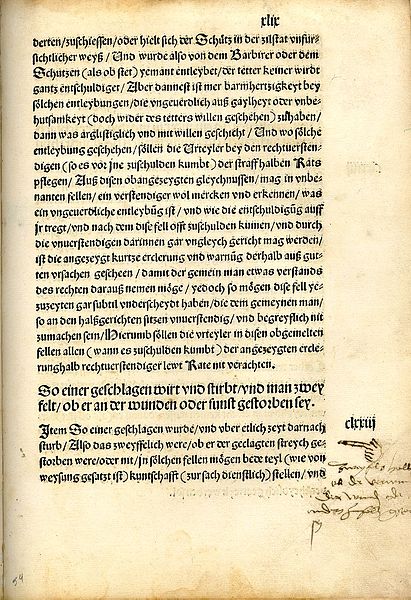 xlix
derten/zuschiessen/oder hielt sich der Schütz in der zilstat vnfür-
sichtlicher weyß/ Vnd wurde also von dem Barbirer oder dem
Schutzen (als ob stet) yemant entleybet/der tetter keiner wirdt
gantz entschuldiget/ Aber dannest ist mer barmhertzigkeyt bey
sölchen entleybungen/die vngeuerdlich auß gaylheyt oder vnbe-
hutsamkeyt (doch wider des tetters willen geschehen) zuhaben/
dann was arglistiglich vnd mit willen geschicht/ Vnd wo sölche
entleybung geschehen/söllen die Vrteyler bey den rechtuersten-
digen (so es vor jne zuschulden kumbt) der straff halben Rats
pflegen/ Auß disen obangezeygten gleychnussen/mag in vnbe-
nanten fellen/ein verstendiger wol mercken vnd erkennen/was
ein vngeuerdtliche entleybũg ist/vnd wie die entschuldigũg auff
jr tregt/vnd nach dem dise fell offt zuschulden kumen/vnd durch
die vnuerstendigen darinnen gar vngleych gericht mag werden/
ist die angezeygt kurtze erclerung vnd warnũg derhalb auß gut-
ten vrsachen gescheen/damit der gemein man etwas verstands
des rechten darauß nemen möge/yedoch so mögen dise fell ye-
zuzeyten gar subtil vnderscheydt haben/die dem gemeynen man/
so an den halßgerichten sitzen vnuerstendig/vnd begreyflich nit
zumachen sein/Hierumb söllen die vrteyler in disen obgemelten
fellen allen (wann es zuschulden kumbt) der angezeygten ercle-
runghalb rechtuerstendiger lewt Rate nit verachten.
So einer geschlagen wirt vnd stirbt/vnd man zwey
felt/ob er an der wunden oder sunst gestorben sey.
clxxiij
Jtem So einer geschlagen wurde/vnd vber etlich zeyt darnach
sturb/Also das zweyffelich were/ob er der geclagten streych ge-
storben were/oder nit/jn sölchen fellen mögen bede teyl (wie von
weysung gesatzt ist) kuntschafft (zur sach dienstlich) stellen/vnd